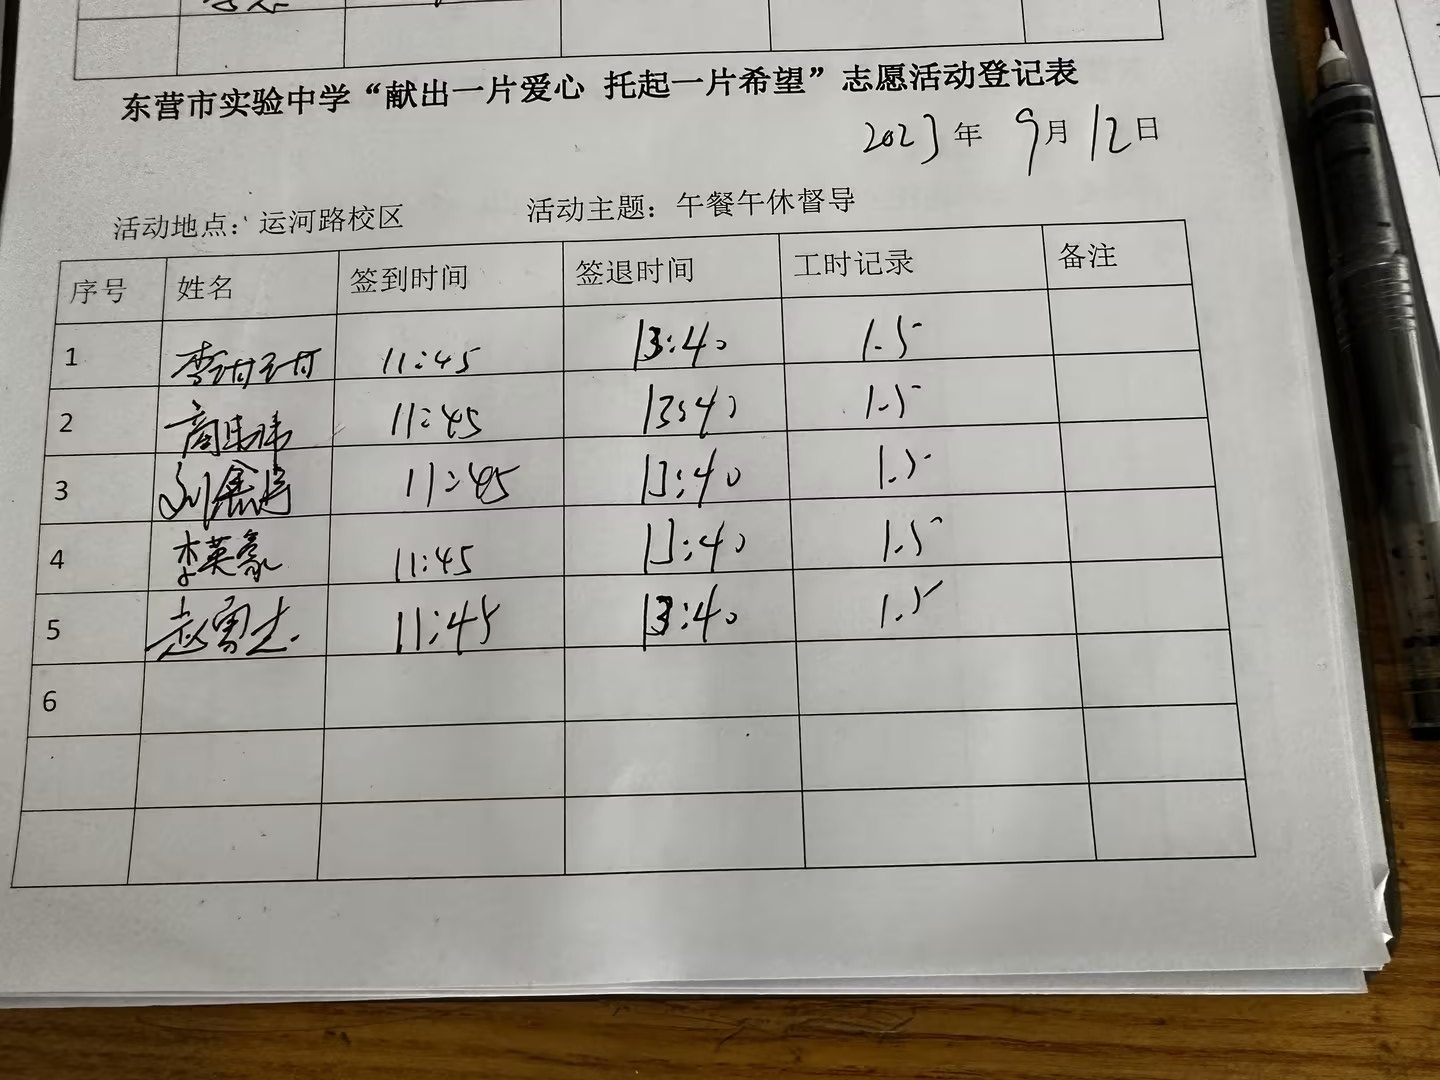 东营市实验中学“献出一片爱心 托起一片希望”志愿活动登记表
2023年 9月12日
活动地点：运河路校区 活动主题：午餐午休督导
序号 姓名 签到时间 签退时间 工时记录 备注
1 李 11:45 13:40 1.5
2 商 11:45 13:40 1.5
3 刘鑫 11:45 13:40 1.5
4 李英豪 11:45 13:40 1.5
5 赵 11:45 13:40 1.5
6